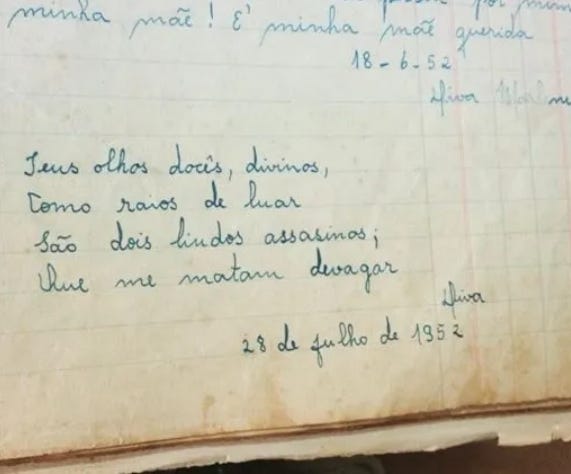 minha mãe! E' minha mãe querida
18-6-52
Diva
Teus olhos docês, divinos,
Como raios de luar
São dois lindos assasinos;
Que me matam devagar
Diva
28 de julho de 1952